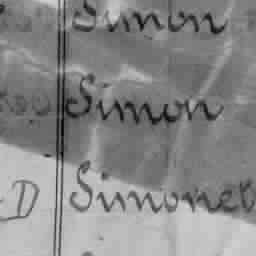 Simon
Simon
D Simonet